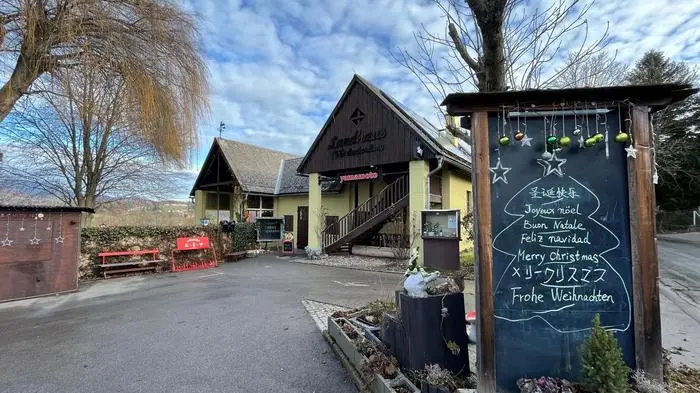 Landhaus
yamamoto
圣诞快乐
Joyeux noël
Buon Natale
Feliz navidad
Merry Christmas
メリークリスマス
Frohe Weihnachten